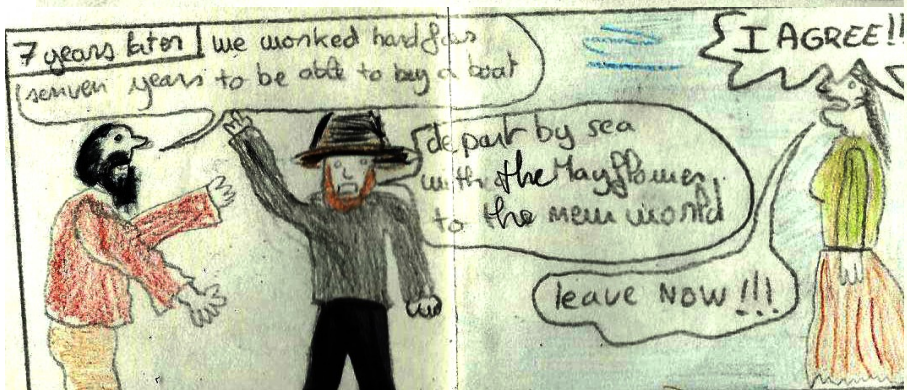 7 years later
we worked hard for
senven years to be able to buy a boat
depart by sea
with the Mayflower
to the new world
I AGREE!!
leave NOW!!!